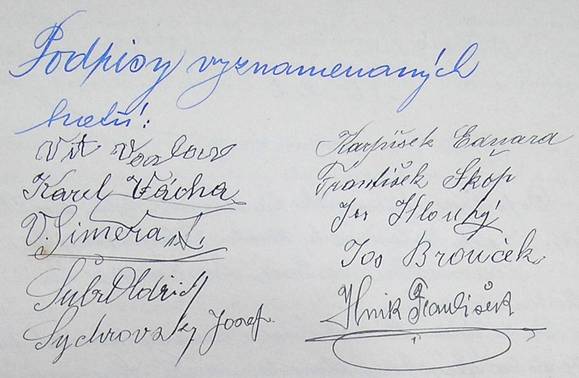 Podpisy vyznamenaných
hostů:
Vít
Karel Vácha
V. Šimera
Šubr Oldřich
Sychrovský Josef
Karpíšek Eduard
František Škop
Jos Hlouhý
Jos Brouček
Hnik František